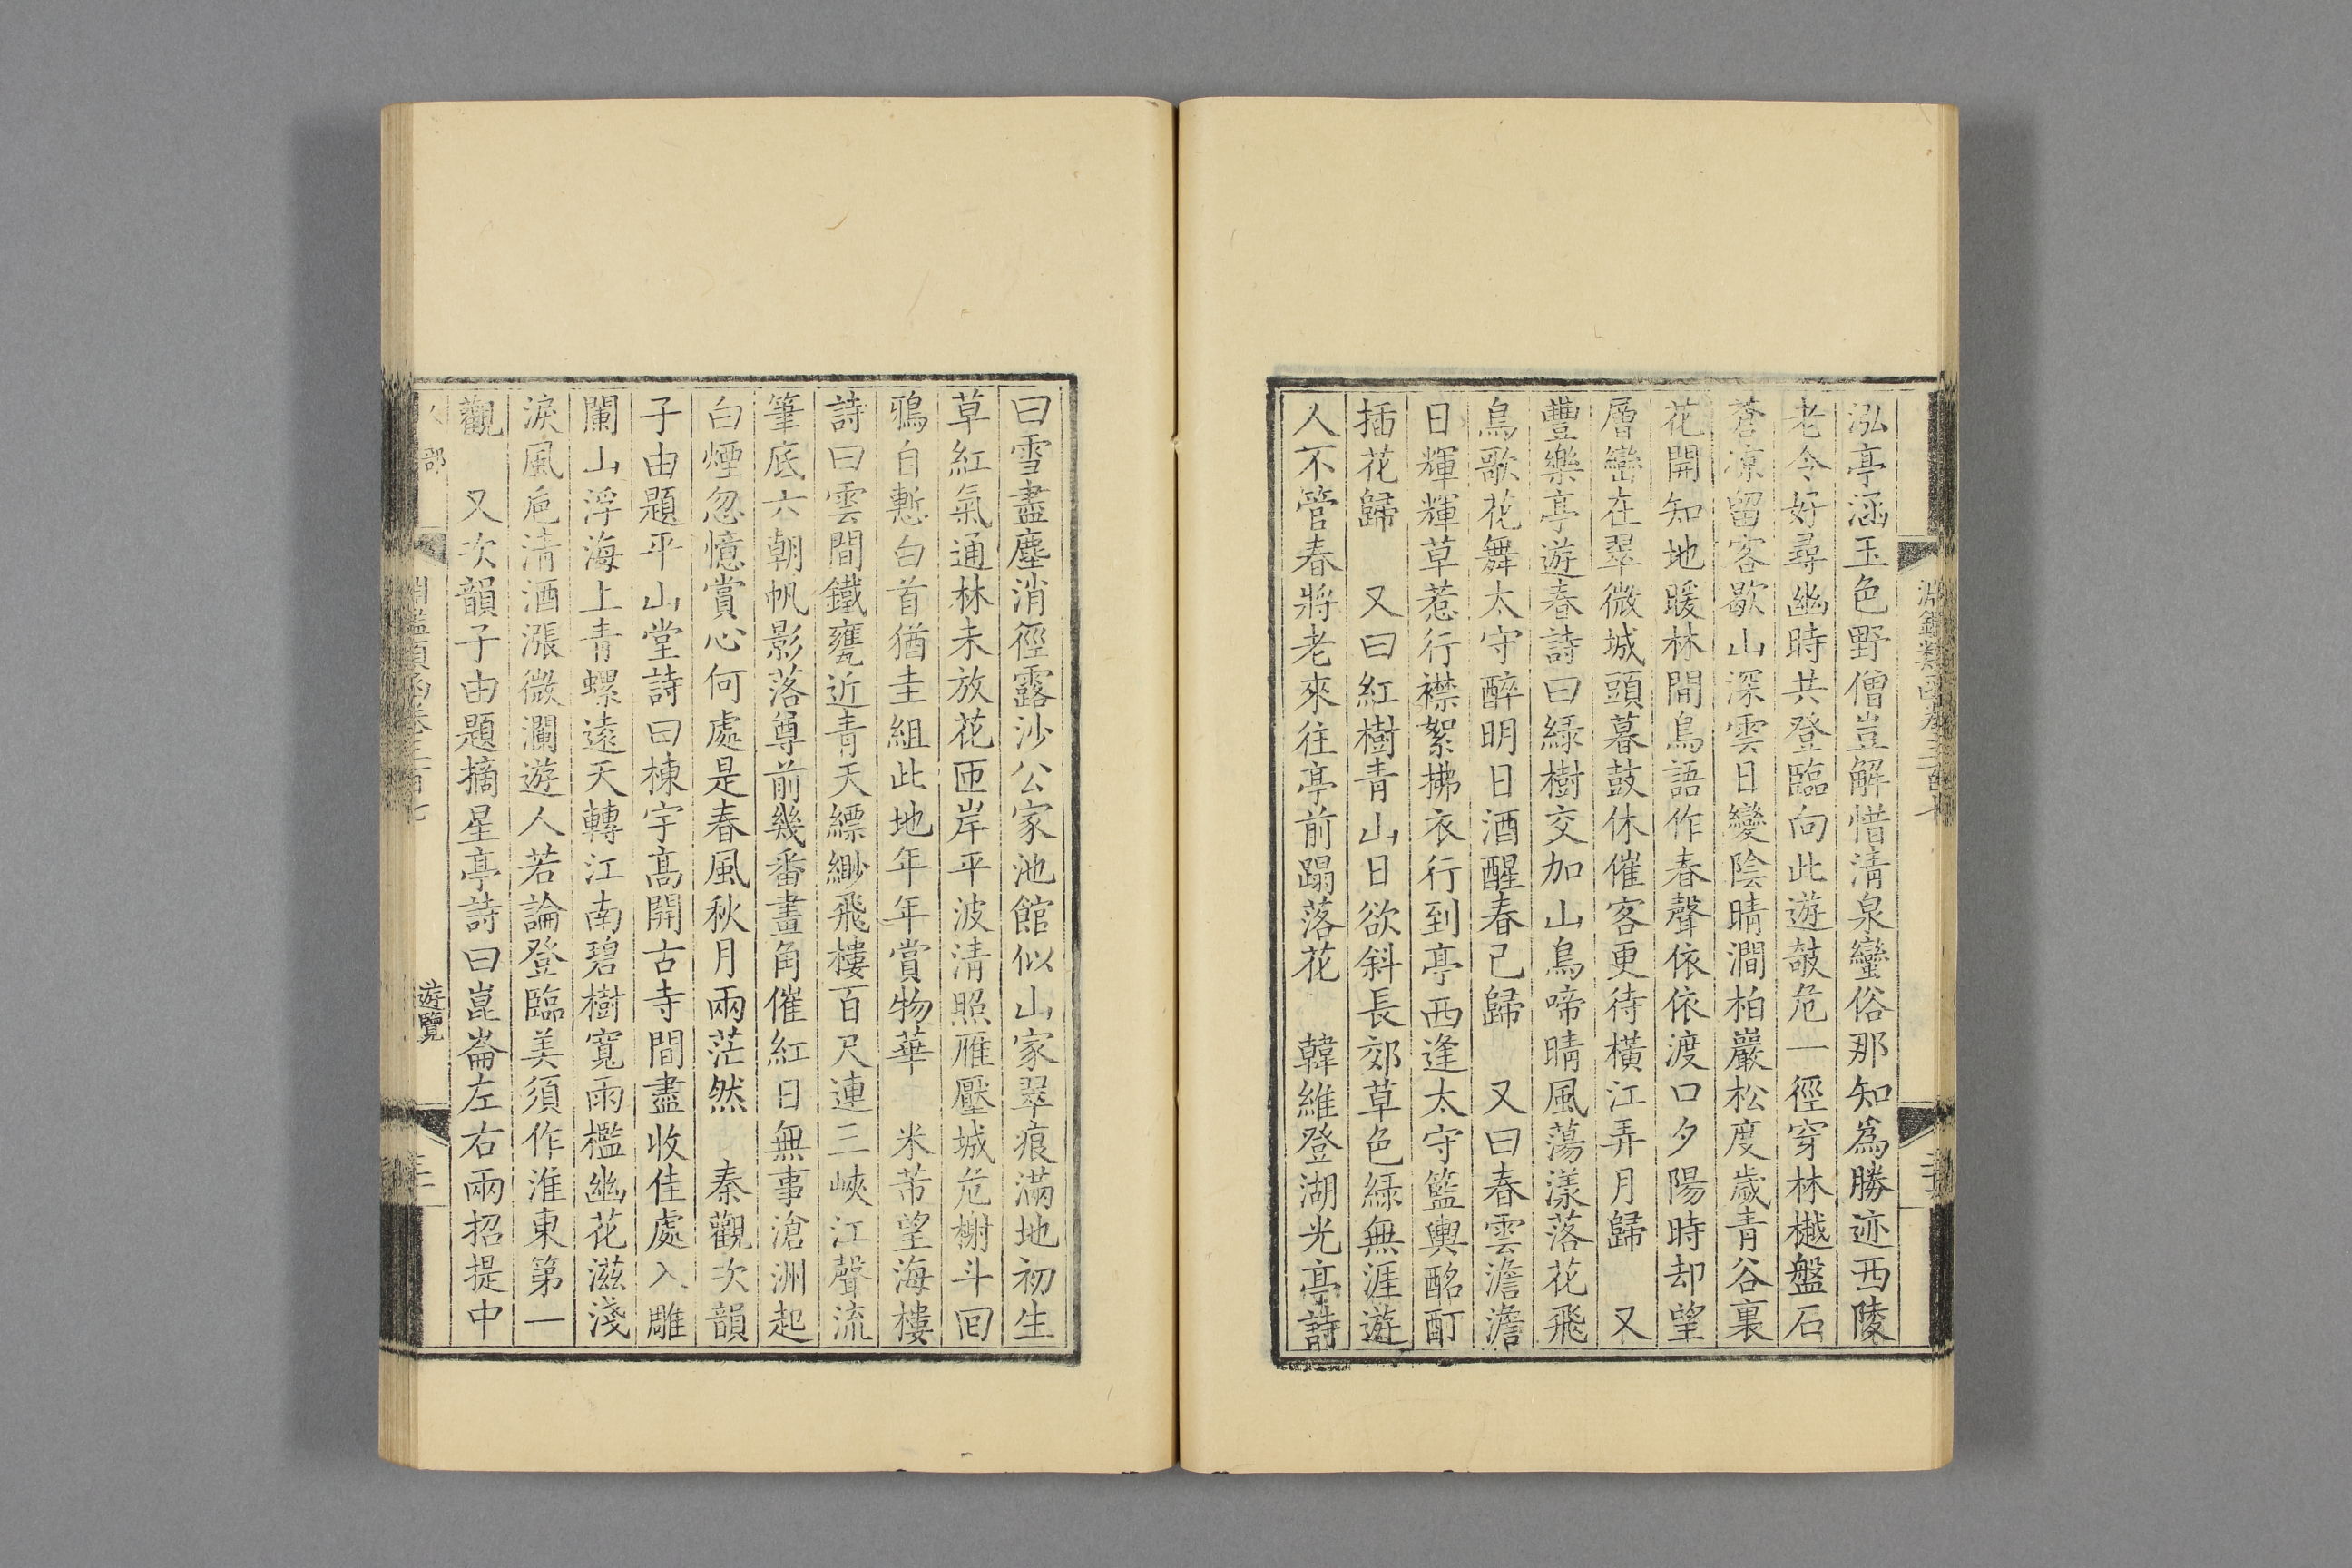 泓亭涵玉色野僧豈解惜清泉蠻俗那知爲勝迹西陵
老令好尋幽時共登臨向此遊攲危一徑穿林樾盤石
蒼凉留客歇山深雲日變陰晴澗柏巖松度歲青谷裏
花開知地暖林間鳥語作春聲依依渡口夕陽時却望
層巒在翠微城頭暮鼓休催客更待橫江弄月歸　又
豐樂亭遊春詩曰綠樹交加山鳥啼晴風蕩漾落花飛
鳥歌花舞太守醉明日酒醒春已歸　又曰春雲澹澹
日輝輝草惹行襟絮拂衣行到亭西逢太守籃輿酩酊
插花歸　又曰紅樹青山日欲斜長郊草色綠無涯遊
人不管春將老來往亭前蹋落花　韓維登湖光亭詩
曰雪盡塵消徑露沙公家池館似山家翠痕滿地初生
草紅氣通林未放花匝岸平波清照雁壓城危榭斗回
鴉自慙白首猶圭組此地年年賞物華　米芾望海樓
詩曰雲間鐵甕近青天縹緲飛樓百尺連三峽江聲流
筆底六朝帆影落尊前幾番畫角催紅日無事滄洲起
白煙忽憶賞心何處是春風秋月兩茫然　秦觀次韻
子由題平山堂詩曰棟宇高開古寺間盡收佳處入雕
闌山浮海上青螺遠天轉江南碧樹寬雨檻幽花滋淺
淚風巵清酒漲微瀾遊人若論登臨美須作淮東第一
觀　又次韻子由題摘星亭詩曰崑崙左右兩招提中
人部
遊覽